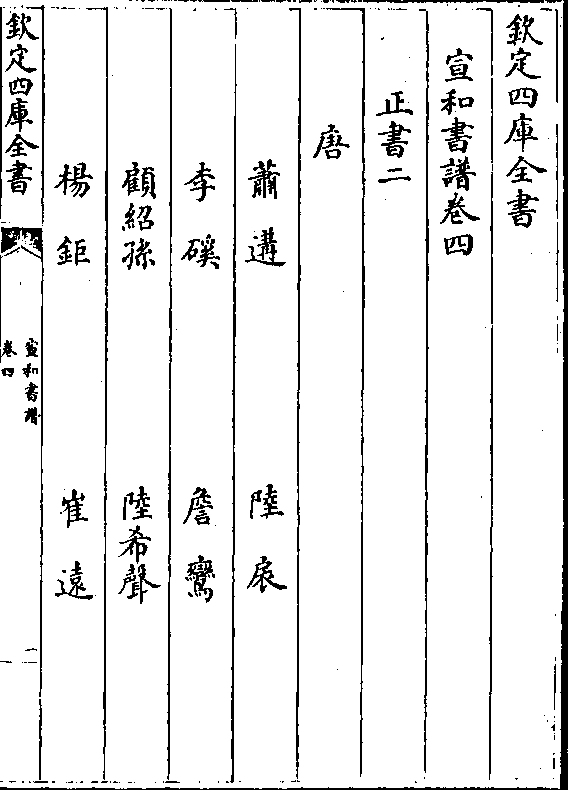 欽定四庫全書
宣和書譜卷四
正書二
唐
蕭遘　陸扆
李磎　詹鸞
顧紹孫　陸希聲
楊鉅　崔遠
欽定四庫全書
宣和書譜
卷四
一